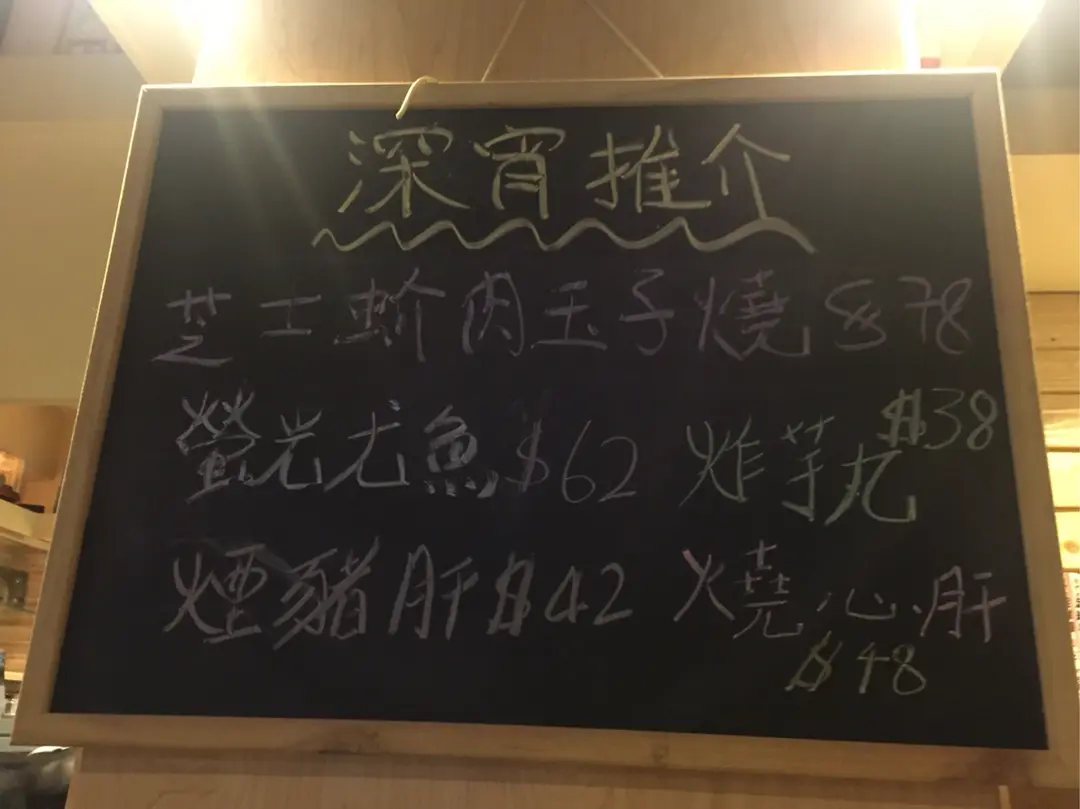 深宵推介
芝士蚧肉玉子燒 $78
螢光尤魚 $62 炸芋丸 $38
煙豬肝 $42 燒心肝 $48